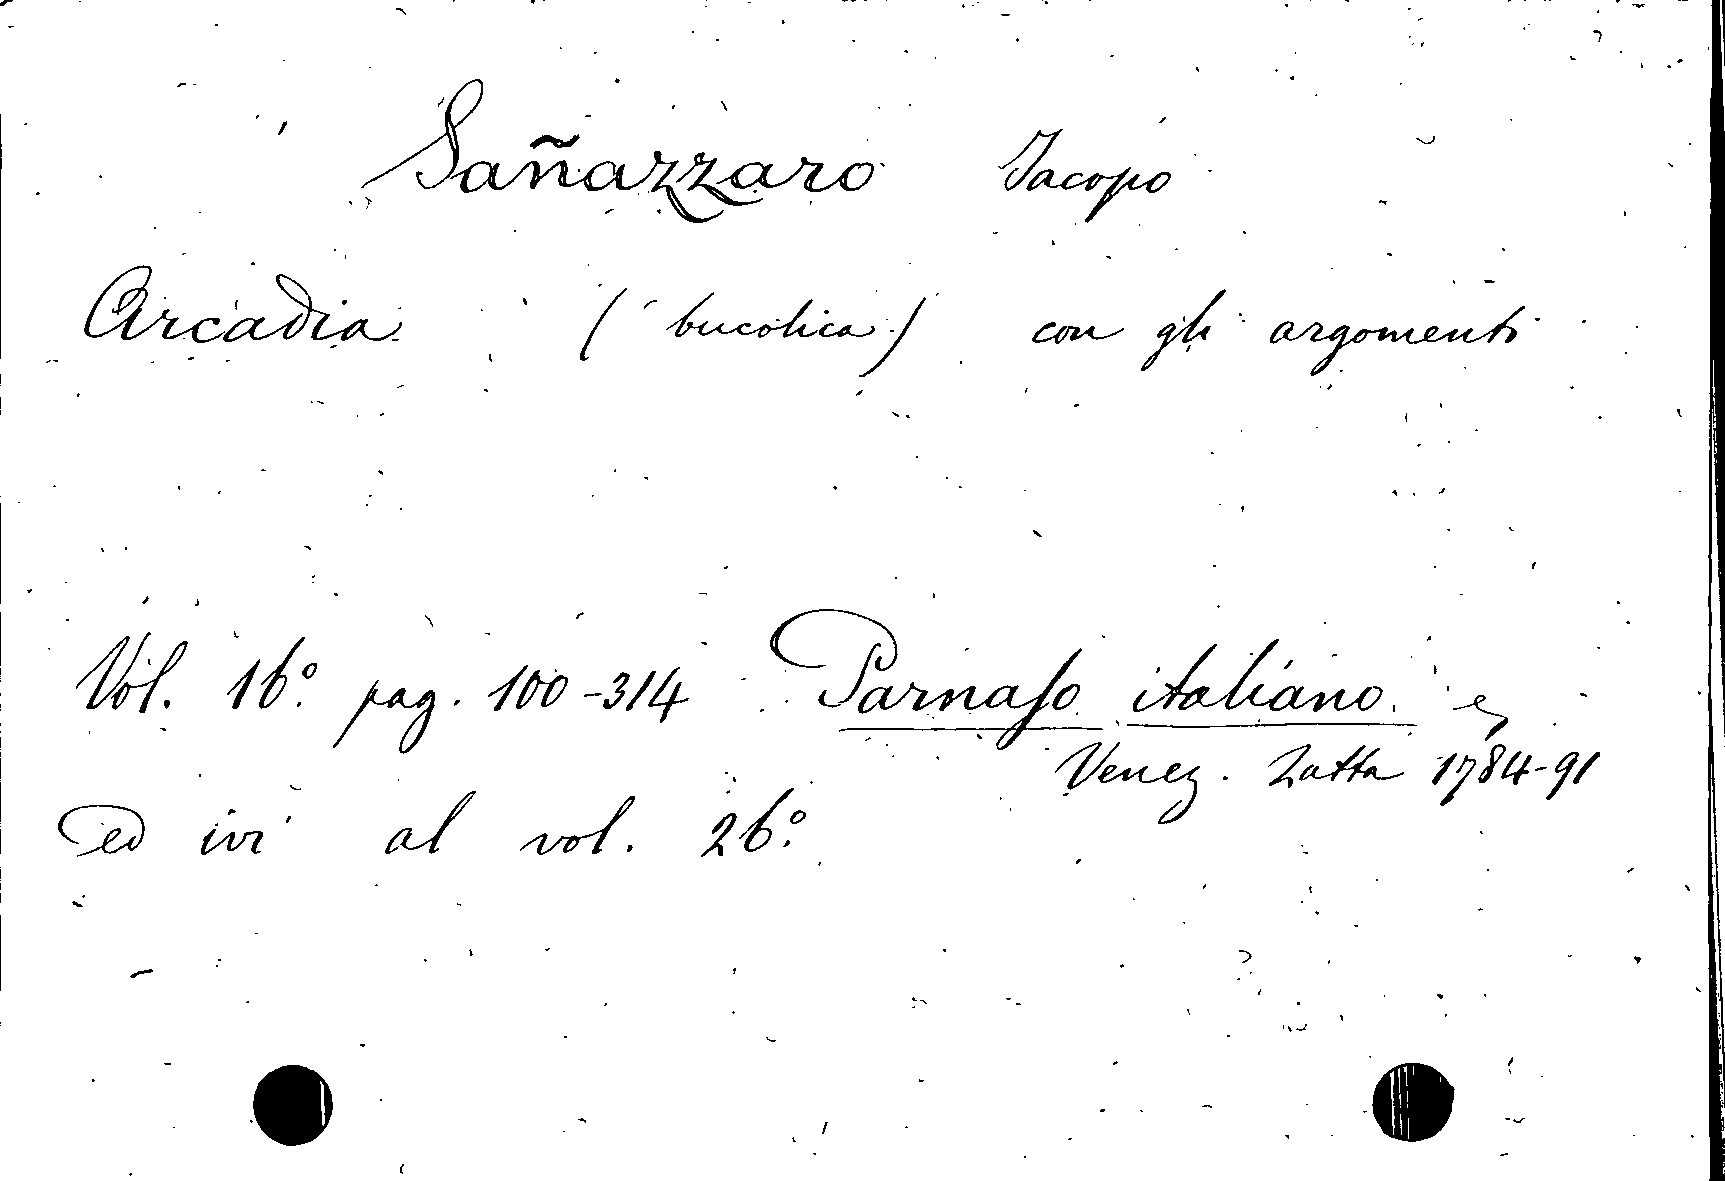 Sañazzaro Jacopo
Arcadia (bucolica) con gli argomenti
Vol. 16.º pag. 100-314 Parnaſo italiano
Venez. Zatta 1784-91
ed ivi al vol. 26.º